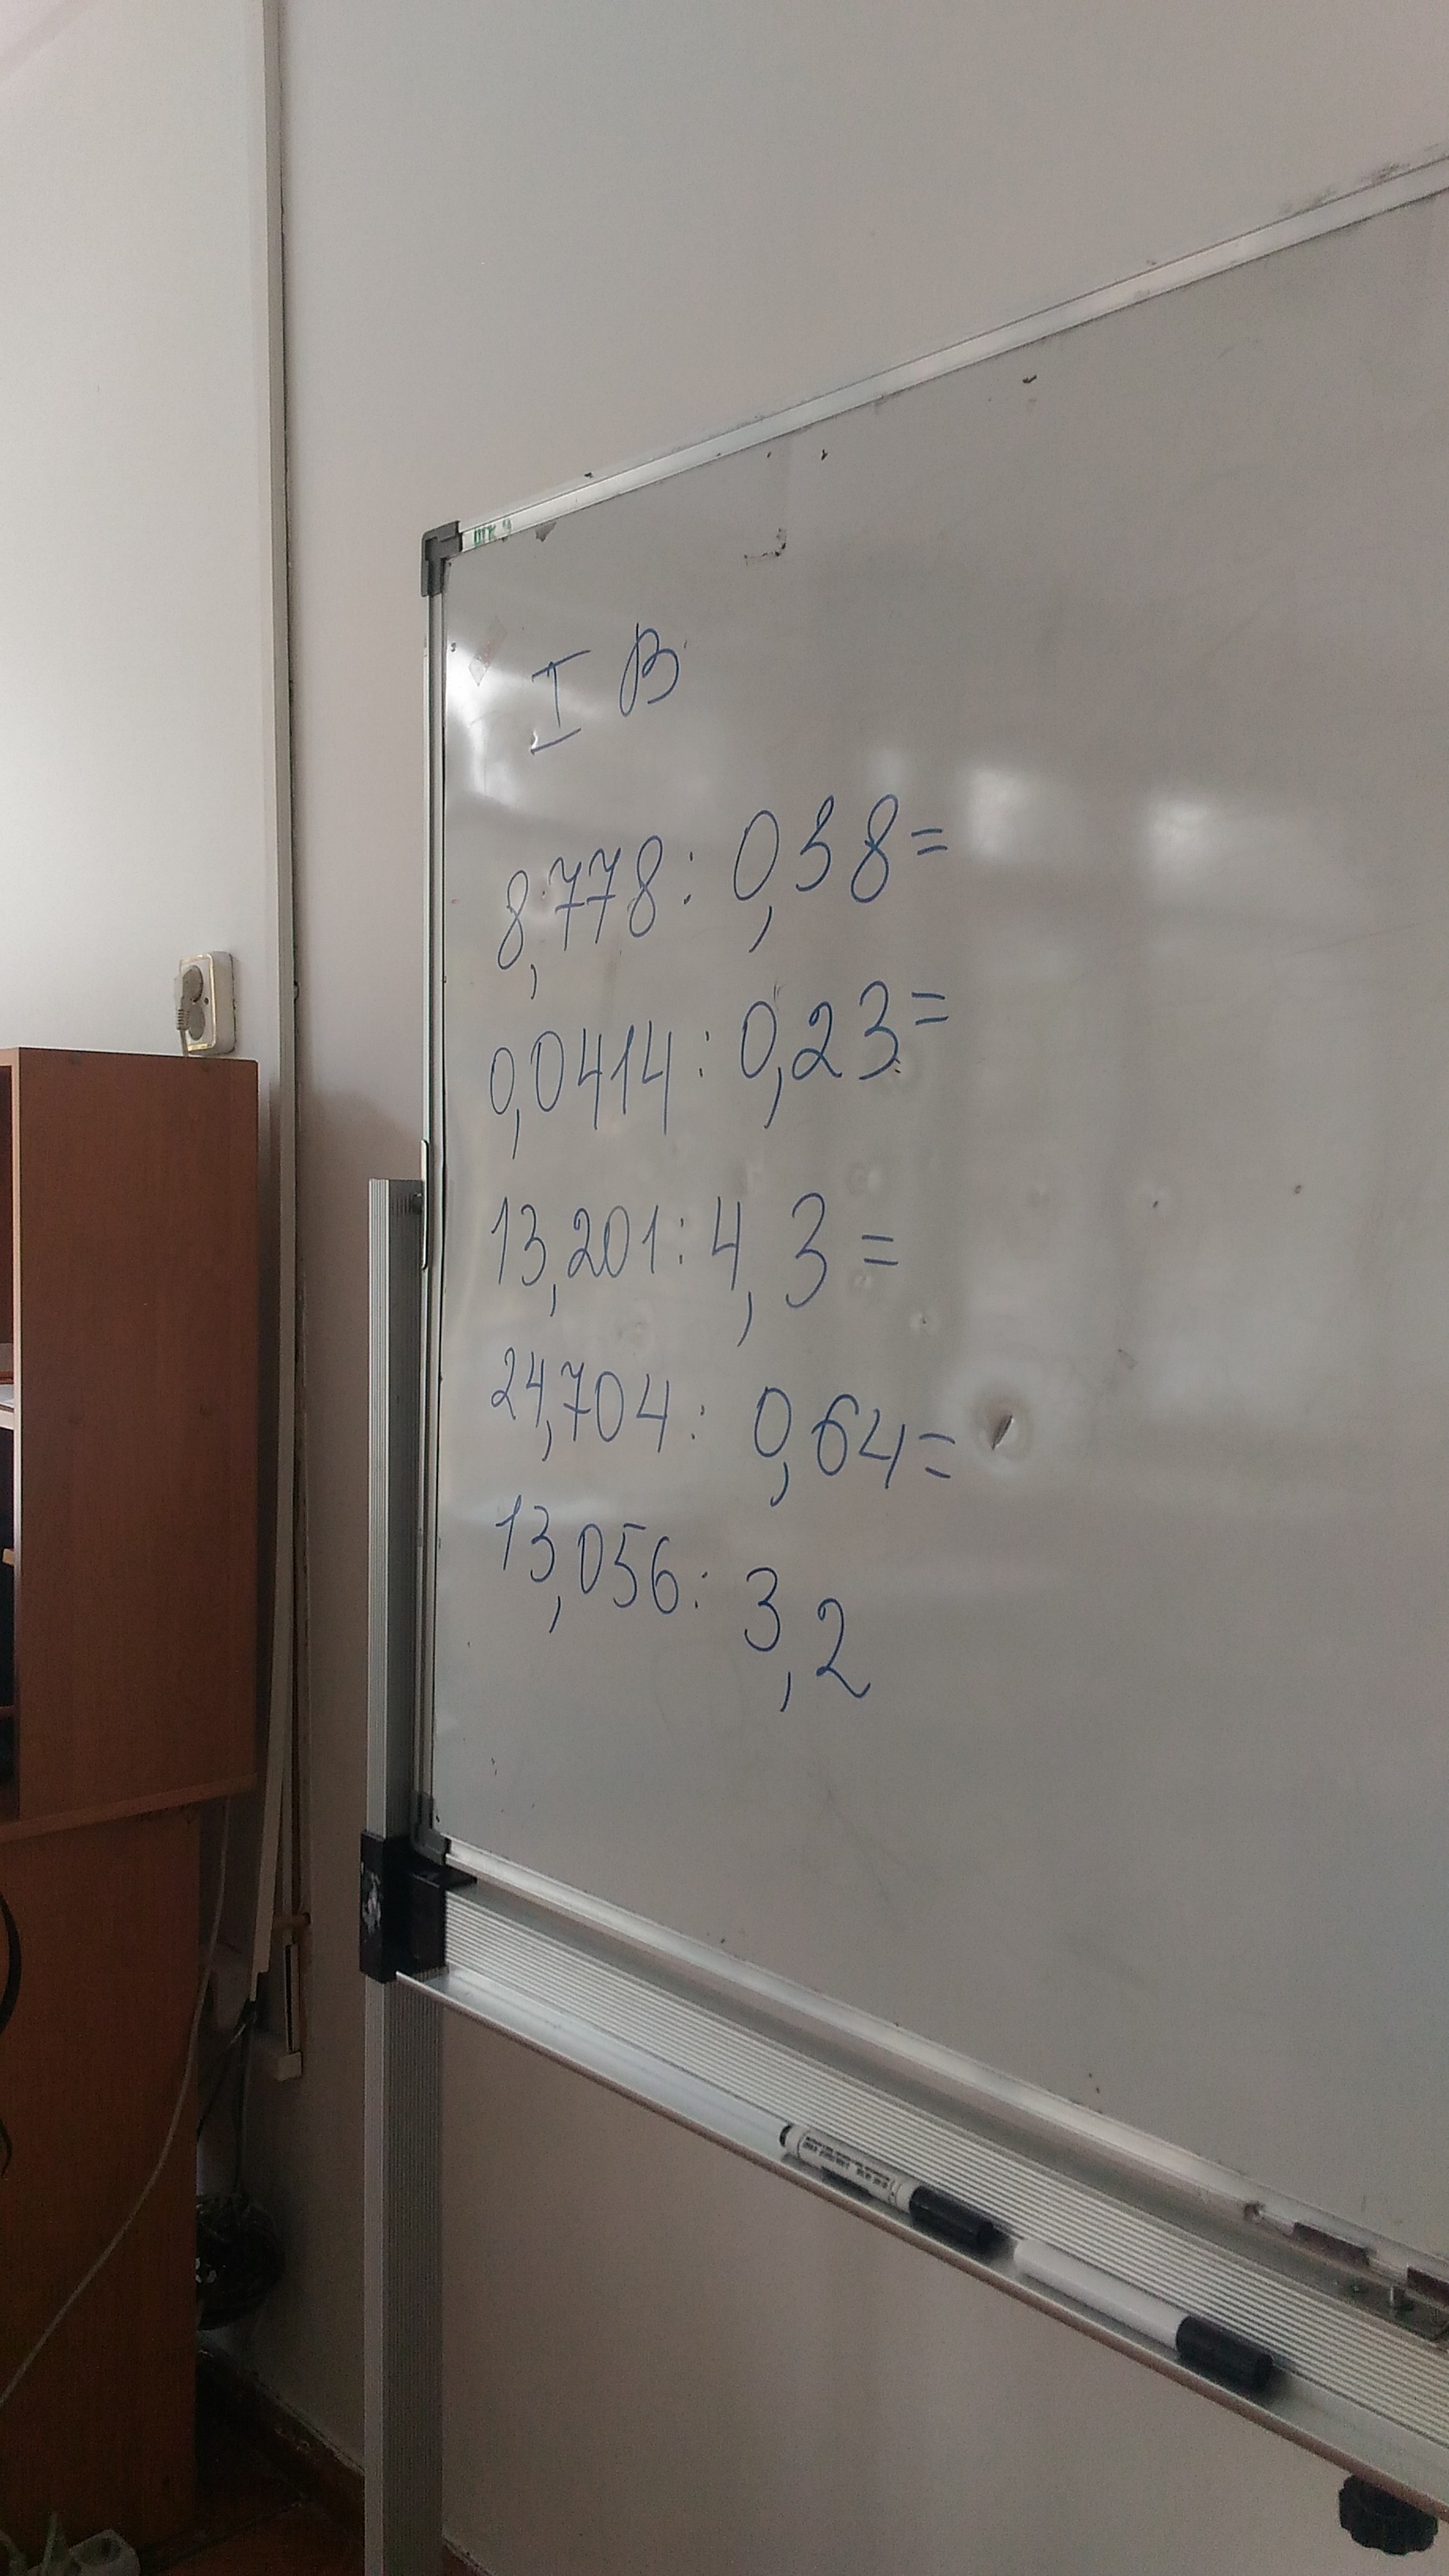 ШК 9
I В
8,778 : 0,38 =
0,0414 : 0,23 =
13,201 : 4,3 =
24,704 : 0,64 =
13,056 : 3,2